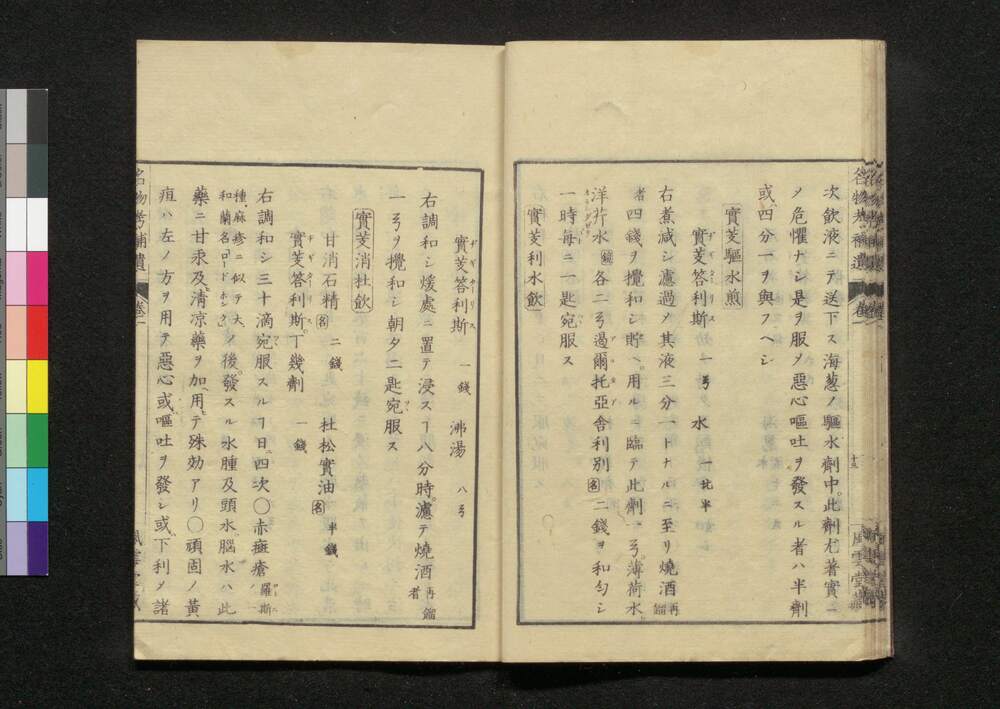 次飲液ニテ送下ス海葱ノ驅水劑中此劑尤著實ニ
ノ危懼ナシ是ヲ服メ惡心嘔吐ヲ發スル者ハ半劑
或四分一ヲ與フヘシ
實芰驅水煎
實芰答利斯 一 水 一 比半
右煮減シ濾過メ其液三分一トナルニ至リ燒酒再餾
者四錢ヲ攪和シ貯ヘ用ルニ臨テ此劑一 薄荷水
洋 水餾各二 遏爾托亞舎利別名二錢ヲ和匀シ
一時毎ニ一匙宛服ス
實芰利水飲
名物考補遺 卷一 十五 風雲堂藏
實芰答利斯 一錢 沸湯 八
右調和シ煖處ニ置テ浸スヿ八分時濾テ燒酒再餾者
一 ヲ攪和シ朝夕二匙宛服ス
實芰消杜飲
甘消石精名 二錢 杜松實油名 半錢
實芰答利斯丁幾劑 一錢
右調和シ三十滴宛服スルヿ日四次〇赤斑瘡羅斯ノ一
種麻疹ニ似テ大和蘭名ロードホンク ノ後發スル水腫及頭水腦水ハ此
藥ニ甘汞及清凉藥ヲ加用テ殊効アリ〇頑固ノ黄
疸ハ左ノ方ヲ用テ惡心或嘔吐ヲ發シ或下利メ諸
名物考補遺 卷一